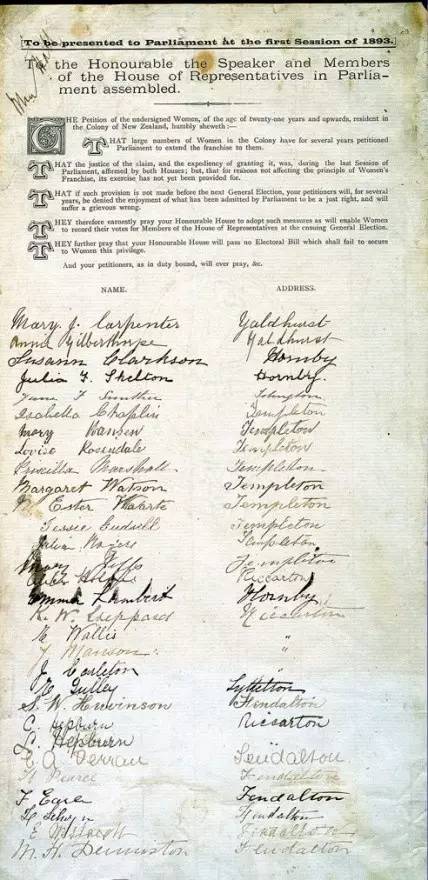 [To be presented to Parliament at the first Session of 1893.]
To the Honourable the Speaker and Members
of the House of Representatives in Parlia-
ment assembled.
THE Petition of the undersigned Women, of the age of twenty-one years and upwards, resident in
the Colony of New Zealand, humbly sheweth:—
THAT large numbers of Women in the Colony have for several years petitioned
Parliament to extend the franchise to them.
THAT the justice of the claim, and the expediency of granting it, was, during the last Session of
Parliament, affirmed by both Houses; but, that for reasons not affecting the principle of Women's
Franchise, its exercise has not yet been provided for.
THAT if such provision is not made before the next General Election, your petitioners will, for several
years, be denied the enjoyment of what has been admitted by Parliament to be a just right, and will
suffer a grievous wrong.
THEY therefore earnestly pray your Honourable House to adopt such measures as will enable Women
to record their votes for Members of the House of Representatives at the ensuing General Election.
THEY further pray that your Honourable House will pass no Electoral Bill which shall fail to secure
to Women this privilege.
And your petitioners, as in duty bound, will ever pray, &c.
NAME. ADDRESS.
Mary J. Carpenter Yaldhurst
Annie Gilberthorpe Yaldhurst
Susann Clarkson Hornby
Julia F. Shelton Hornby.
Jane
Isabella Chaplin Templeton
Mary Hansen Templeton
Louisa Rosendale Templeton
Priscilla Marshall Templeton
Margaret Watson Templeton
Ester Templeton
Jessie Templeton
Templeton
Mary Templeton
Riccarton
Emma Lambert Hornby
K. W. Sheppard Riccarton
K Wallis "
Manson "
J Carleton "
Gulley Lyttelton
S. W. Fendalton
C. Hepburn Riccarton
C. Hepburn
C A Fendalton
Pearce Fendalton
F Fendalton
Fendalton
E Fendalton
M. H. Denniston Fendalton